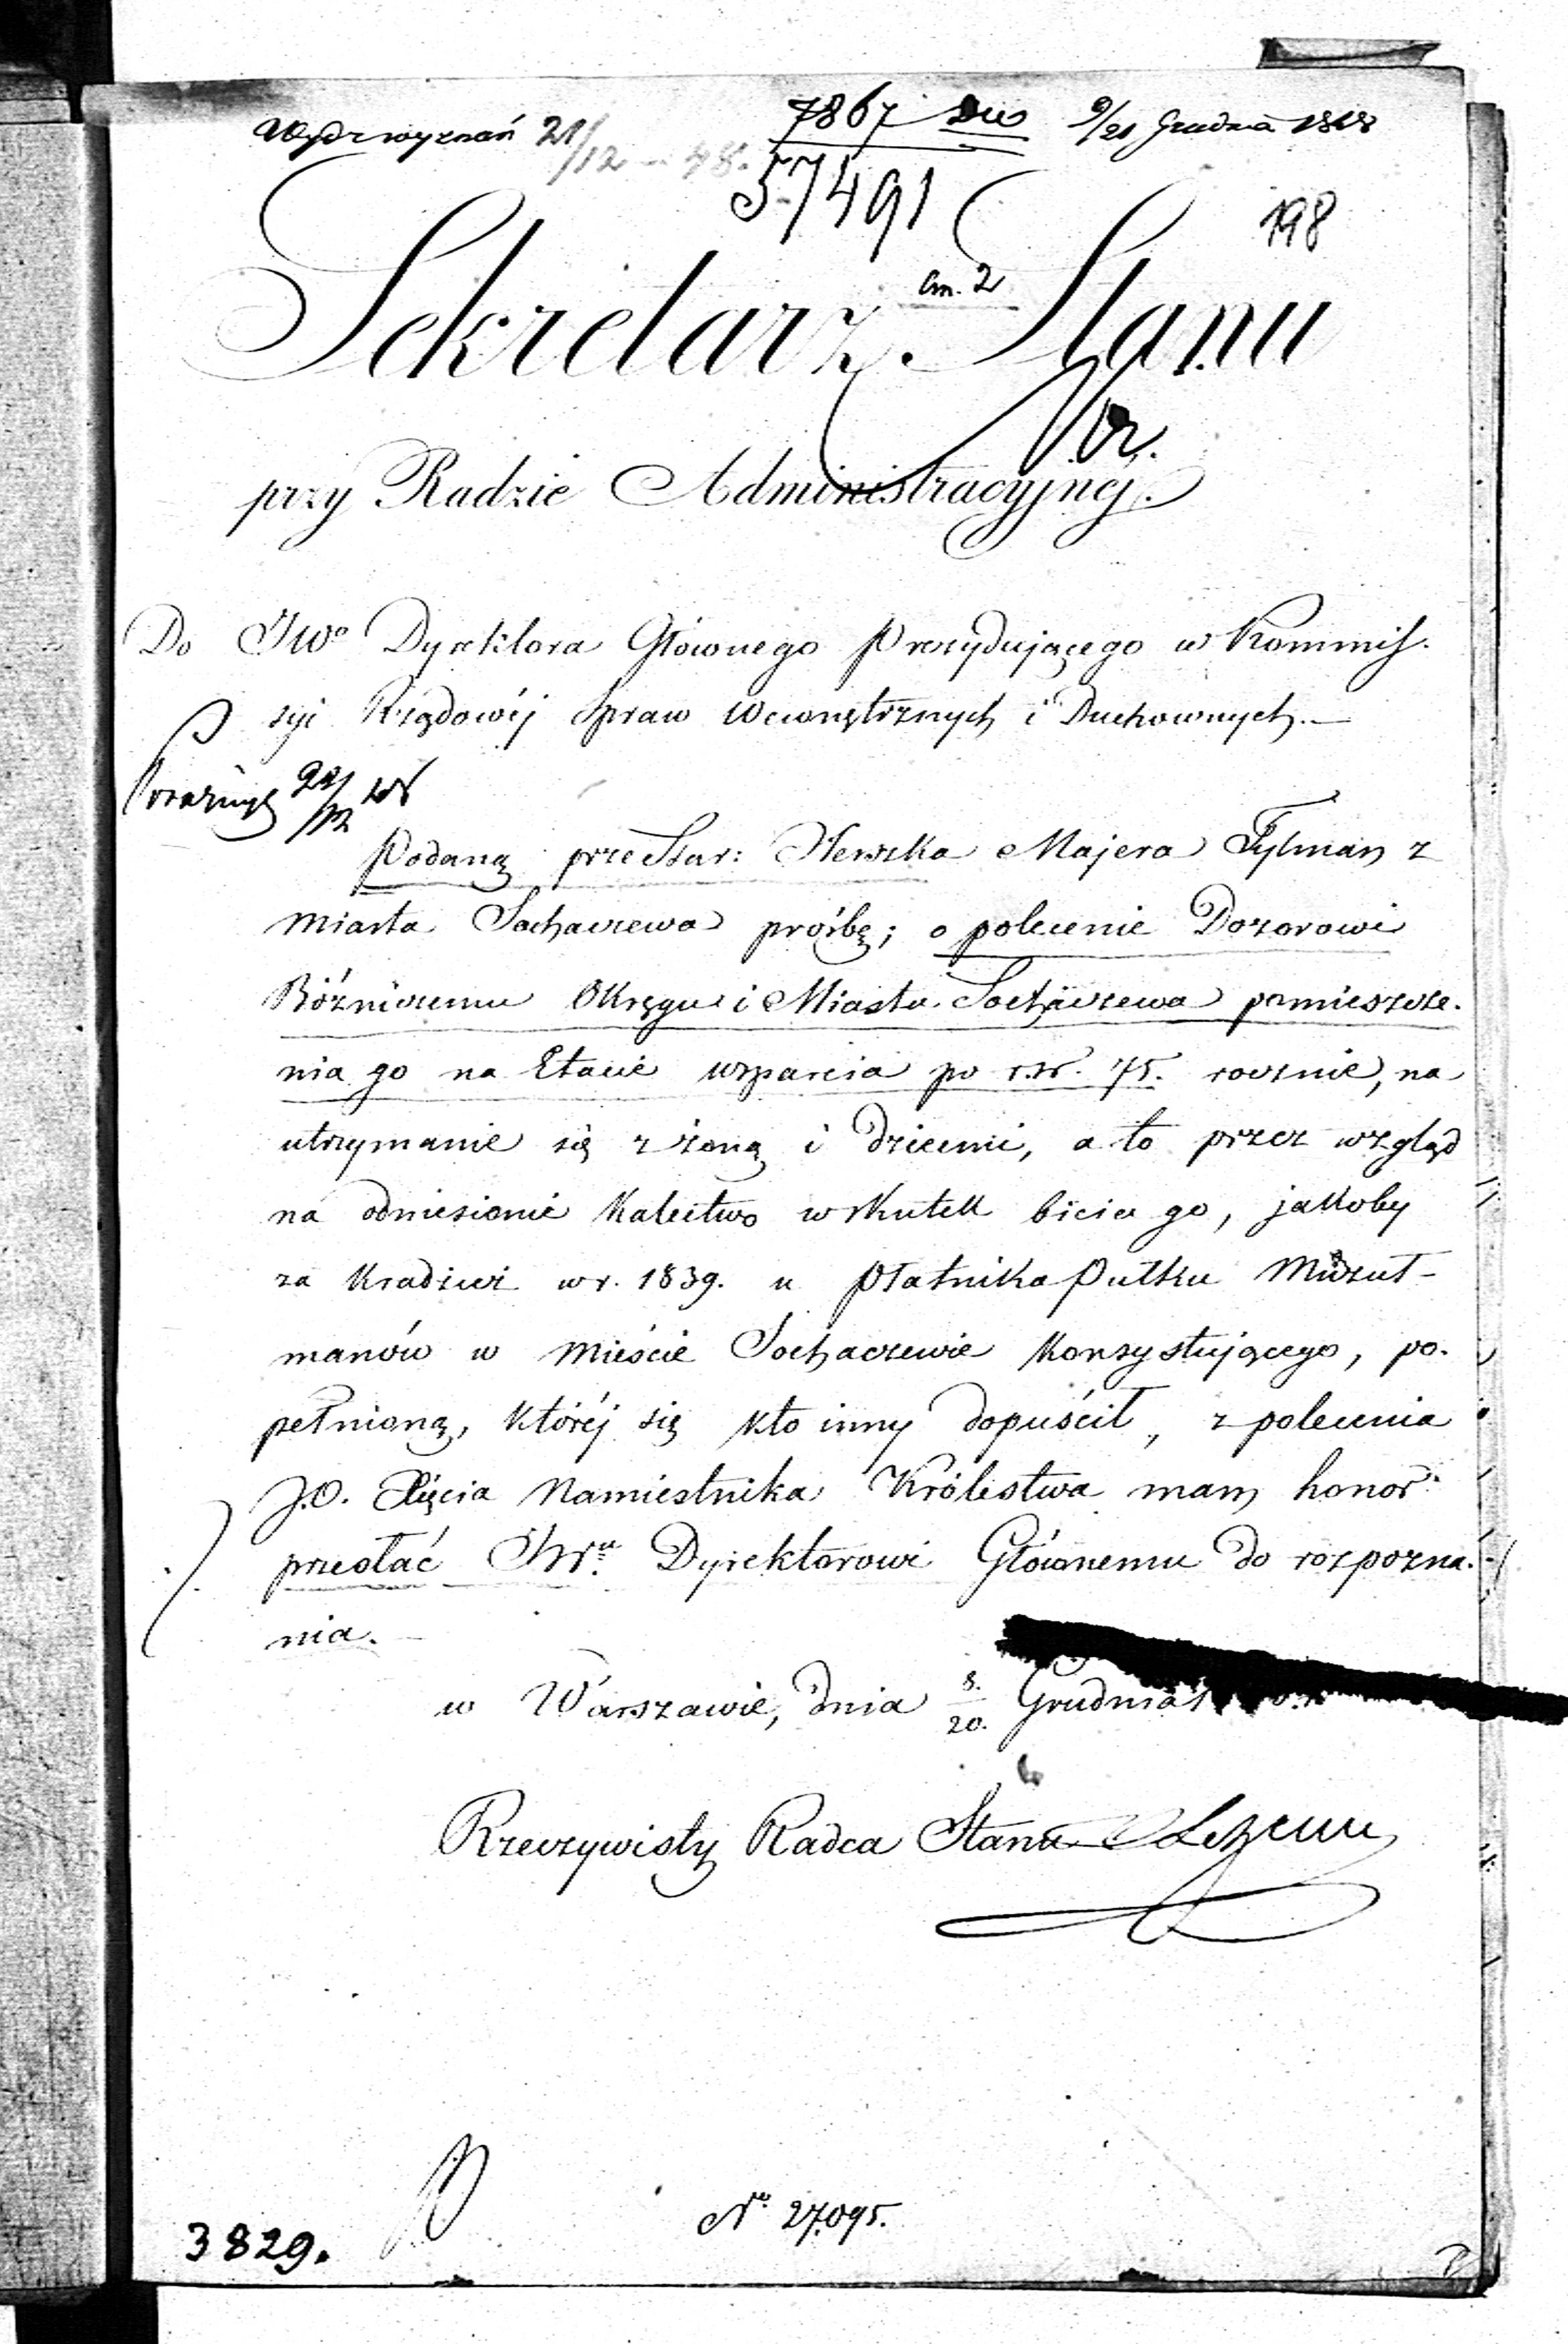 Wydz wyznań 21/12 – 48.
7867 Dus 9/21 Grudnia 1848
57491
198
Sekretarz Stanu
przy Radzie Administracyjnej.
Do JWo Dyrektora Głównego Prezydującego w Kommis-
syi Rządowéj Spraw Wewnętrznych i Duchownych.—
22/12 48
Podaną przez Star: Herszka Majera Tylman z
miasta Sochaczewa prośbę; o polecenie Dozorowi
Bóżniczemu Okręgu i Miasta Sochaczewa pomieszcze-
nia go na Etacie wsparcia po r.sr. 75. rocznie, na
utrzymanie się z żoną i dziećmi, a to przez wzgląd
na odniesione kalectwo wskutek bicia go, jakoby
za kradzież w r. 1839. u Płatnika Pułku Muzuł-
manów w mieście Sochaczewie konsystującego, po-
pełnioną, któréj się kto inny dopuścił, z polecenia
J.O. Xięcia Namiestnika Królestwa mam honor
przesłać JWu Dyrektorowi Głównemu do rozpozna-
nia.
w Warszawie, dnia 8./20. Grudnia
Rzeczywisty Radca Stanu
3829.
No 27,095.